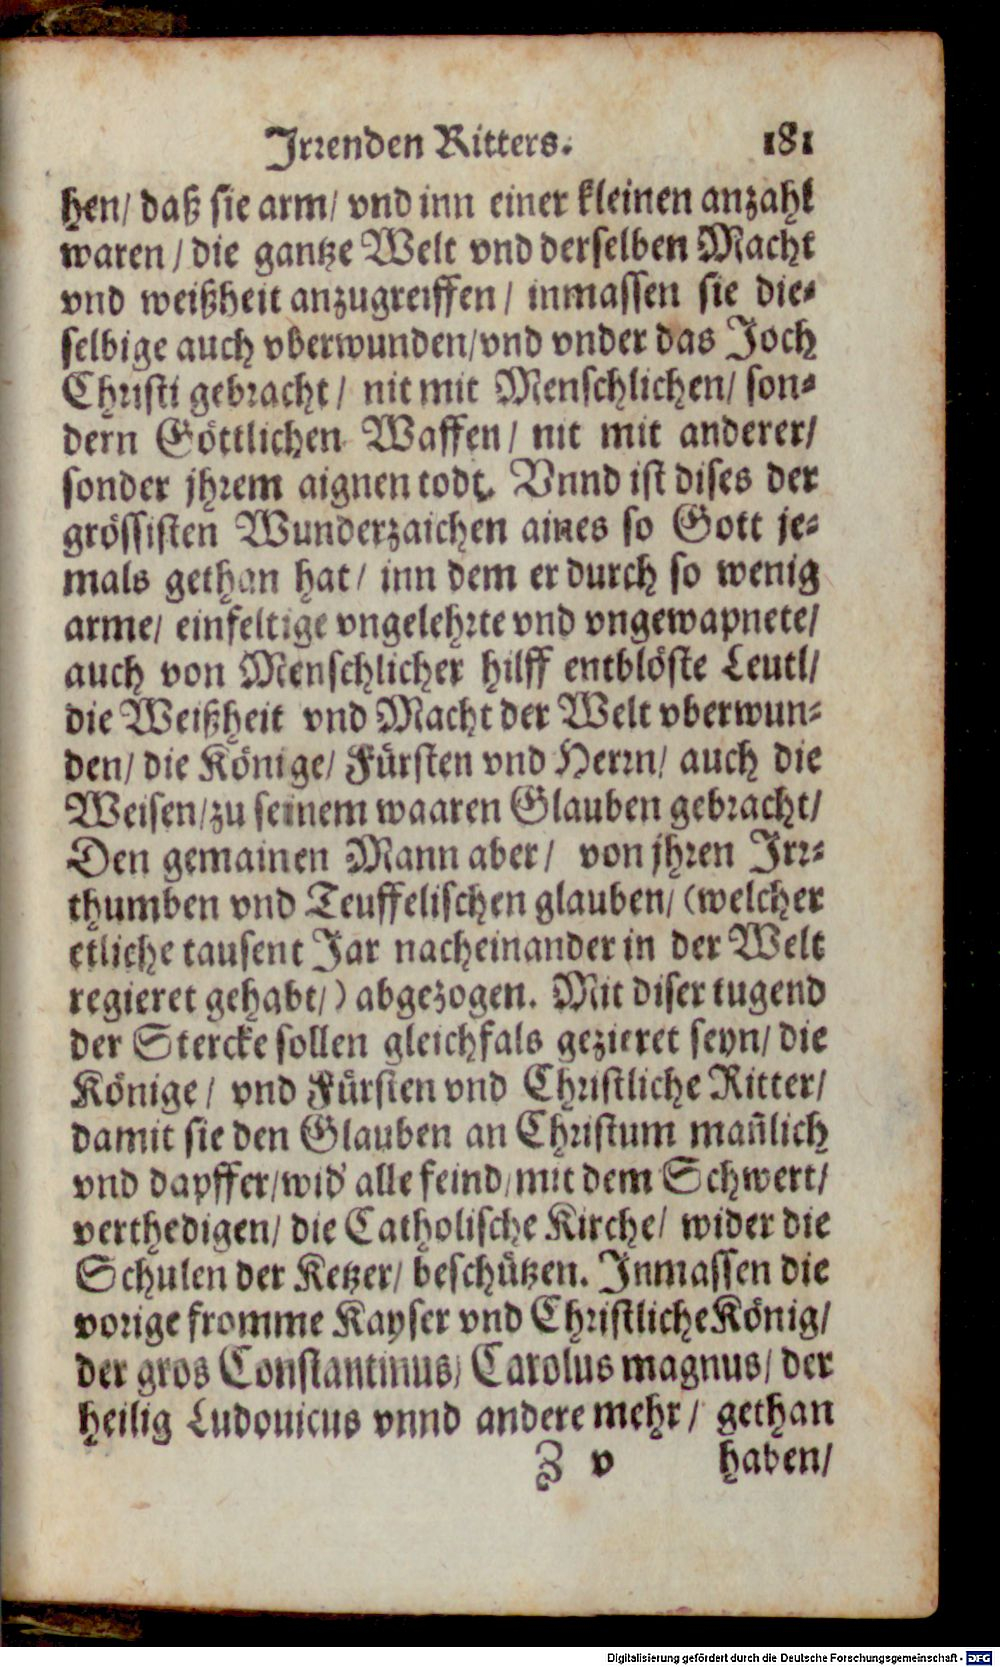 Irrenden Ritters. 181
hen/ daß sie arm/ vnd inn einer kleinen anzahl
waren / die gantze Welt vnd derselben Macht
vnd weißheit anzugreiffen / inmassen sie die-
selbige auch vberwunden/vnd vnder das Joch
Christi gebracht / nit mit Menschlichen/ son-
dern Göttlichen Waffen / nit mit anderer/
sonder jhrem aignen todt. Vnnd ist dises der
grössisten Wunderzaichen aines so Gott je-
mals gethan hat / inn dem er durch so wenig
arme/ einfeltige vngelehrte vnd vngewapnete/
auch von Menschlicher hilff entblöste Leutl/
die Weißheit vnd Macht der Welt vberwun-
den/ die Könige/ Fürsten vnd Herrn/ auch die
Weisen/zu seinem waaren Glauben gebracht/
Den gemainen Mann aber / von jhren Irr-
thumben vnd Teuffelischen glauben/ (welcher
etliche tausent Jar nacheinander in der Welt
regieret gehabt/) abgezogen. Mit diser tugend
der Stercke sollen gleichfals gezieret seyn/ die
Könige / vnd Fürsten vnd Christliche Ritter/
damit sie den Glauben an Christum mañlich
vnd dapffer/wid' alle feind/mit dem Schwert/
verthedigen/ die Catholische Kirche/ wider die
Schulen der Ketzer/ beschützen. Inmassen die
vorige fromme Kayser vnd Christliche König/
der gros Constantinus/ Carolus magnus/ der
heilig Ludouicus vnnd andere mehr / gethan
Z v haben/
Digitalisierung gefördert durch die Deutsche Forschungsgemeinschaft - DFG